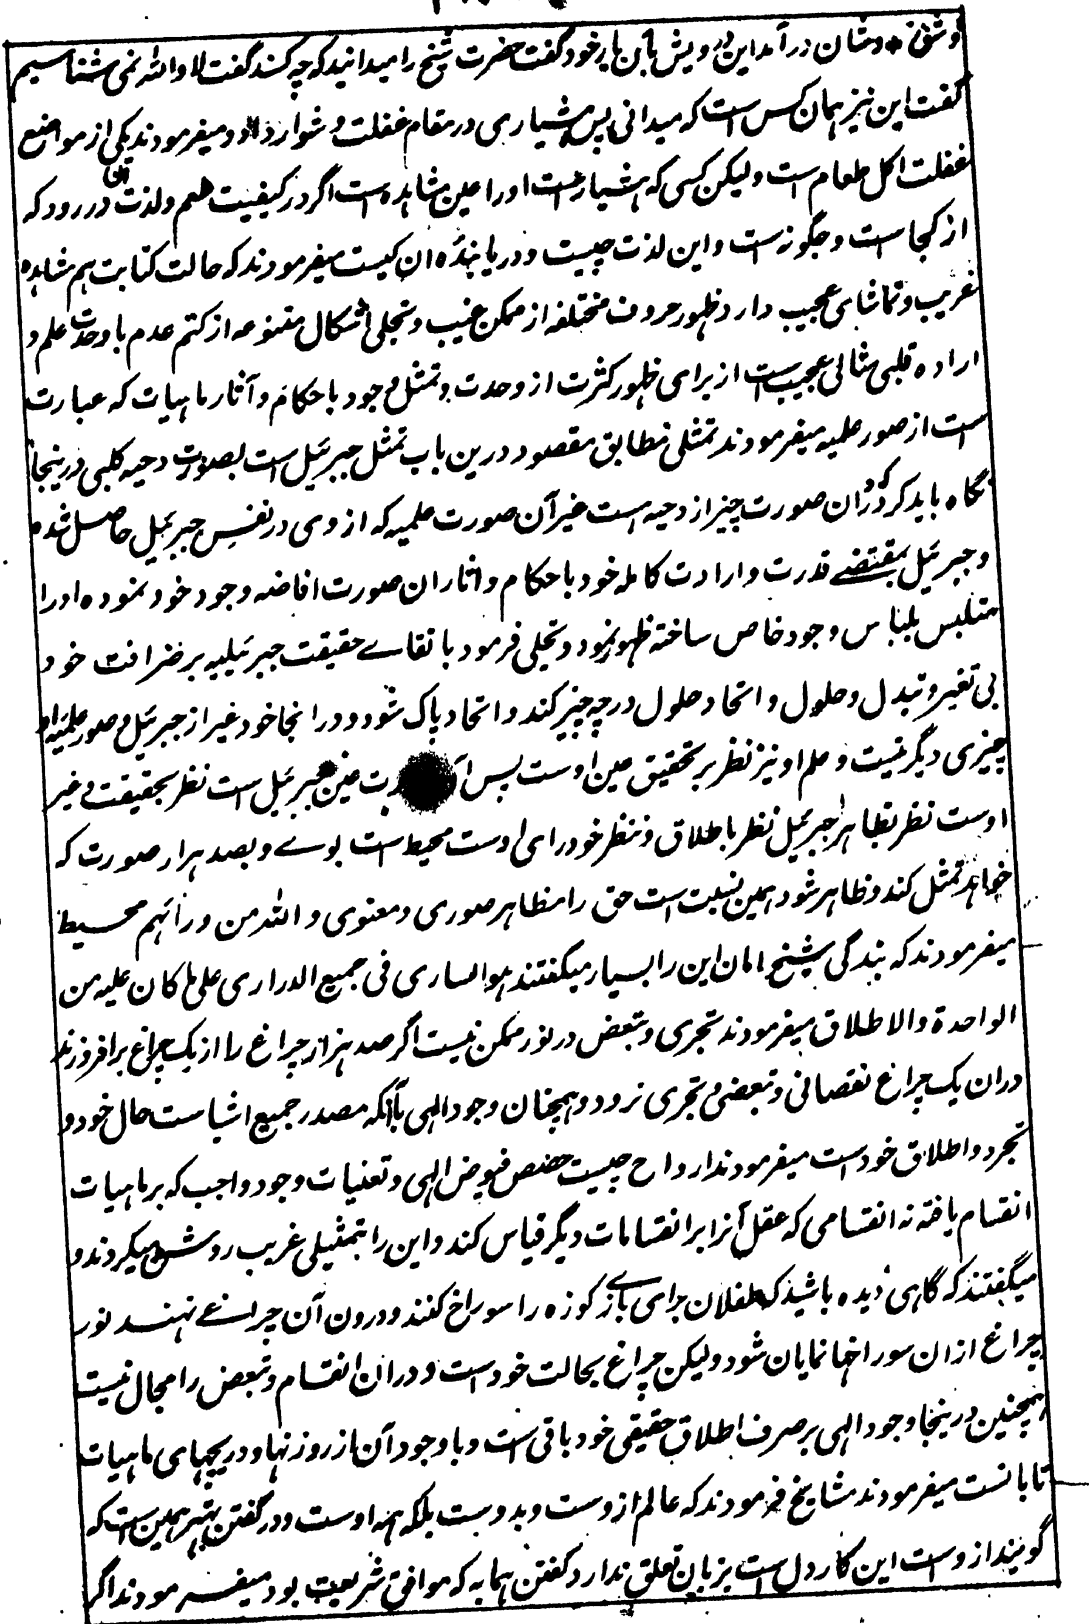 درآمد این درویش بآن یار خود گفت حضرت شیخ را میدانید که چه کسند گفت لا والله نمی شناسیم
گفت این نیز همان کس است که میدانی پس هشیاری در مقام غفلت دشوار دارد و میفرمودند یکی از مواضع
غفلت اکل طعام است ولیکن کسی که هشیار است او را عین مشاهده است اگر در کیفیت طعم ولذت آن در رود که
از کجا است و چگونه است و این لذت چیست و دریابنده آن کیست میفرمودند که حالت کتابت هم مشاهده
غریب و تماشای عجیب دارد ظهور حروف مختلفه از ممکن غیب و تجلی اشکال متنوعه از کتم عدم با وحدت علم و
اراده قلبی مثالی عجیب است از برای ظهور کثرت از وحدت و تمثل وجود باحکام و آثار ماهیات که عبارت
است از صور علمیه میفرمودند تمثلی مطابق مقصود درین باب تمثل جبرئیل است بصورت دحیه کلبی درینجا
نگاه باید کرد که دران صورت چیز از دحیه است غیر آن صورت علمیه که از وی در نفس جبرئیل حاصل شده
و جبرئیل بمقتضے قدرت و ارادت کامله خود باحکام و اثار ان صورت افاضه وجود خود نموده او را
متلبس بلباس وجود خاص ساخته ظهور نمود و تجلی فرمود با بقاے حقیقت جبرئیلیه بر صرافت خود
بی تغیر و تبدل و حلول و اتحاد حلول در چه چیز کند و اتحاد باک شود و در انجا خود غیر از جبرئیل و صور علمیه او
چیزی دیگر نیست و علم او نیز نظر بر تحقیق عین اوست پس عین جبرئیل است نظر بحقیقت و غیر
اوست نظر بظاهر جبرئیل نظر باطلاق و نظر خود رای اوست محیط است بوے و بصد هزار صورت که
خواهد تمثل کند و ظاهر شود همین نسبت است حق را مظاهر صوری و معنوی و الله من ورائهم محیط
میفرمودند که بندگی شیخ امان این را بسیار میگفتند هو الساری فی جمیع الدراری علی ما کان علیه من
الواحدة والاطلاق میفرمودند تجزی و تبعض در نور ممکن نیست اگر صد هزار چراغ را از یک چراغ برافروزند
دران یک چراغ نقصانی و تبعضی و تجزی نرود و همچنان وجود الهی باآنکه مصدر جمیع اشیاست حال خود و
تجرد و اطلاق خود است میفرمودند ارواح چیست حصص فیوض الهی و تعنیات وجود واجب که بر ماهیات
انقسام یافته نه انقسامی که عقل آنرا بر انقسامات دیگر قیاس کند و این را بتمثیلی غریب روشن میکردند و
میگفتند که گاهی دیده باشید که طفلان برای بازے کوزه را سوراخ کنند و درون آن چراغے نهند نور
چراغ ازان سوراخها نمایان شود ولیکن چراغ بحالت خود است و دران انقسام و تبعض را مجال نیست
همچنین درینجا وجود الهی بر صرف اطلاق حقیقی خود باقی است و با وجود آن از روزنها و دریچهای ماهیات
تابانست میفرمودند مشایخ فرمودند که عالم ازوست و بدوست بلکه همه اوست و در گفتن بهتر همین است که
گویند ازوست این کار دل است بزبان تعلق ندارد گفتن همابه که موافق شریعت بود میفرمودند اگر